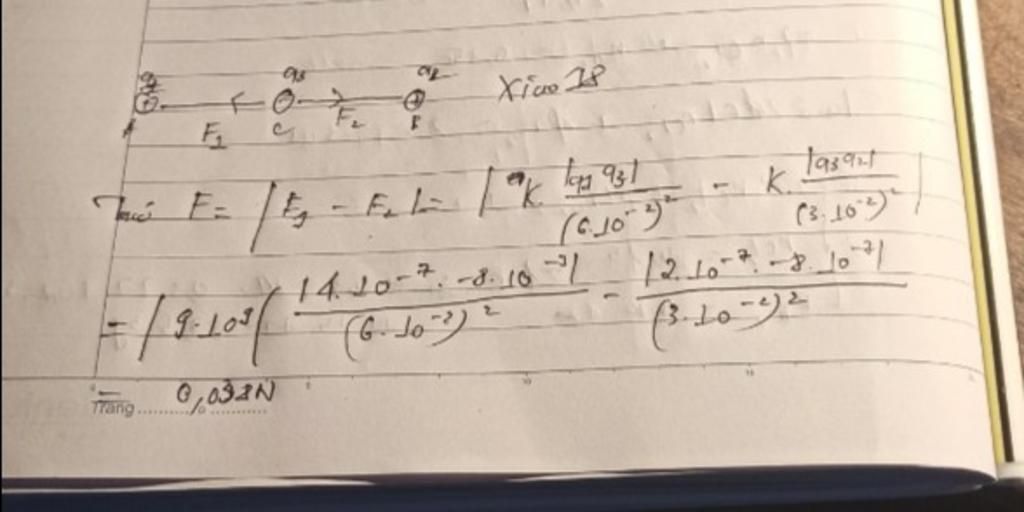 q1 q3 q2
A F1 C F2 B
F = | F1 - F2 | = | K. |q1 q3| / (6.10⁻²)² - K. |q3 q2| / (3.10⁻²)² |
= | 9.10⁹ ( |4.10⁻⁷. -8.10⁻⁷| / (6.10⁻²)² - |2.10⁻⁷. -8.10⁻⁷| / (3.10⁻²)²
= 0,032N
Trang